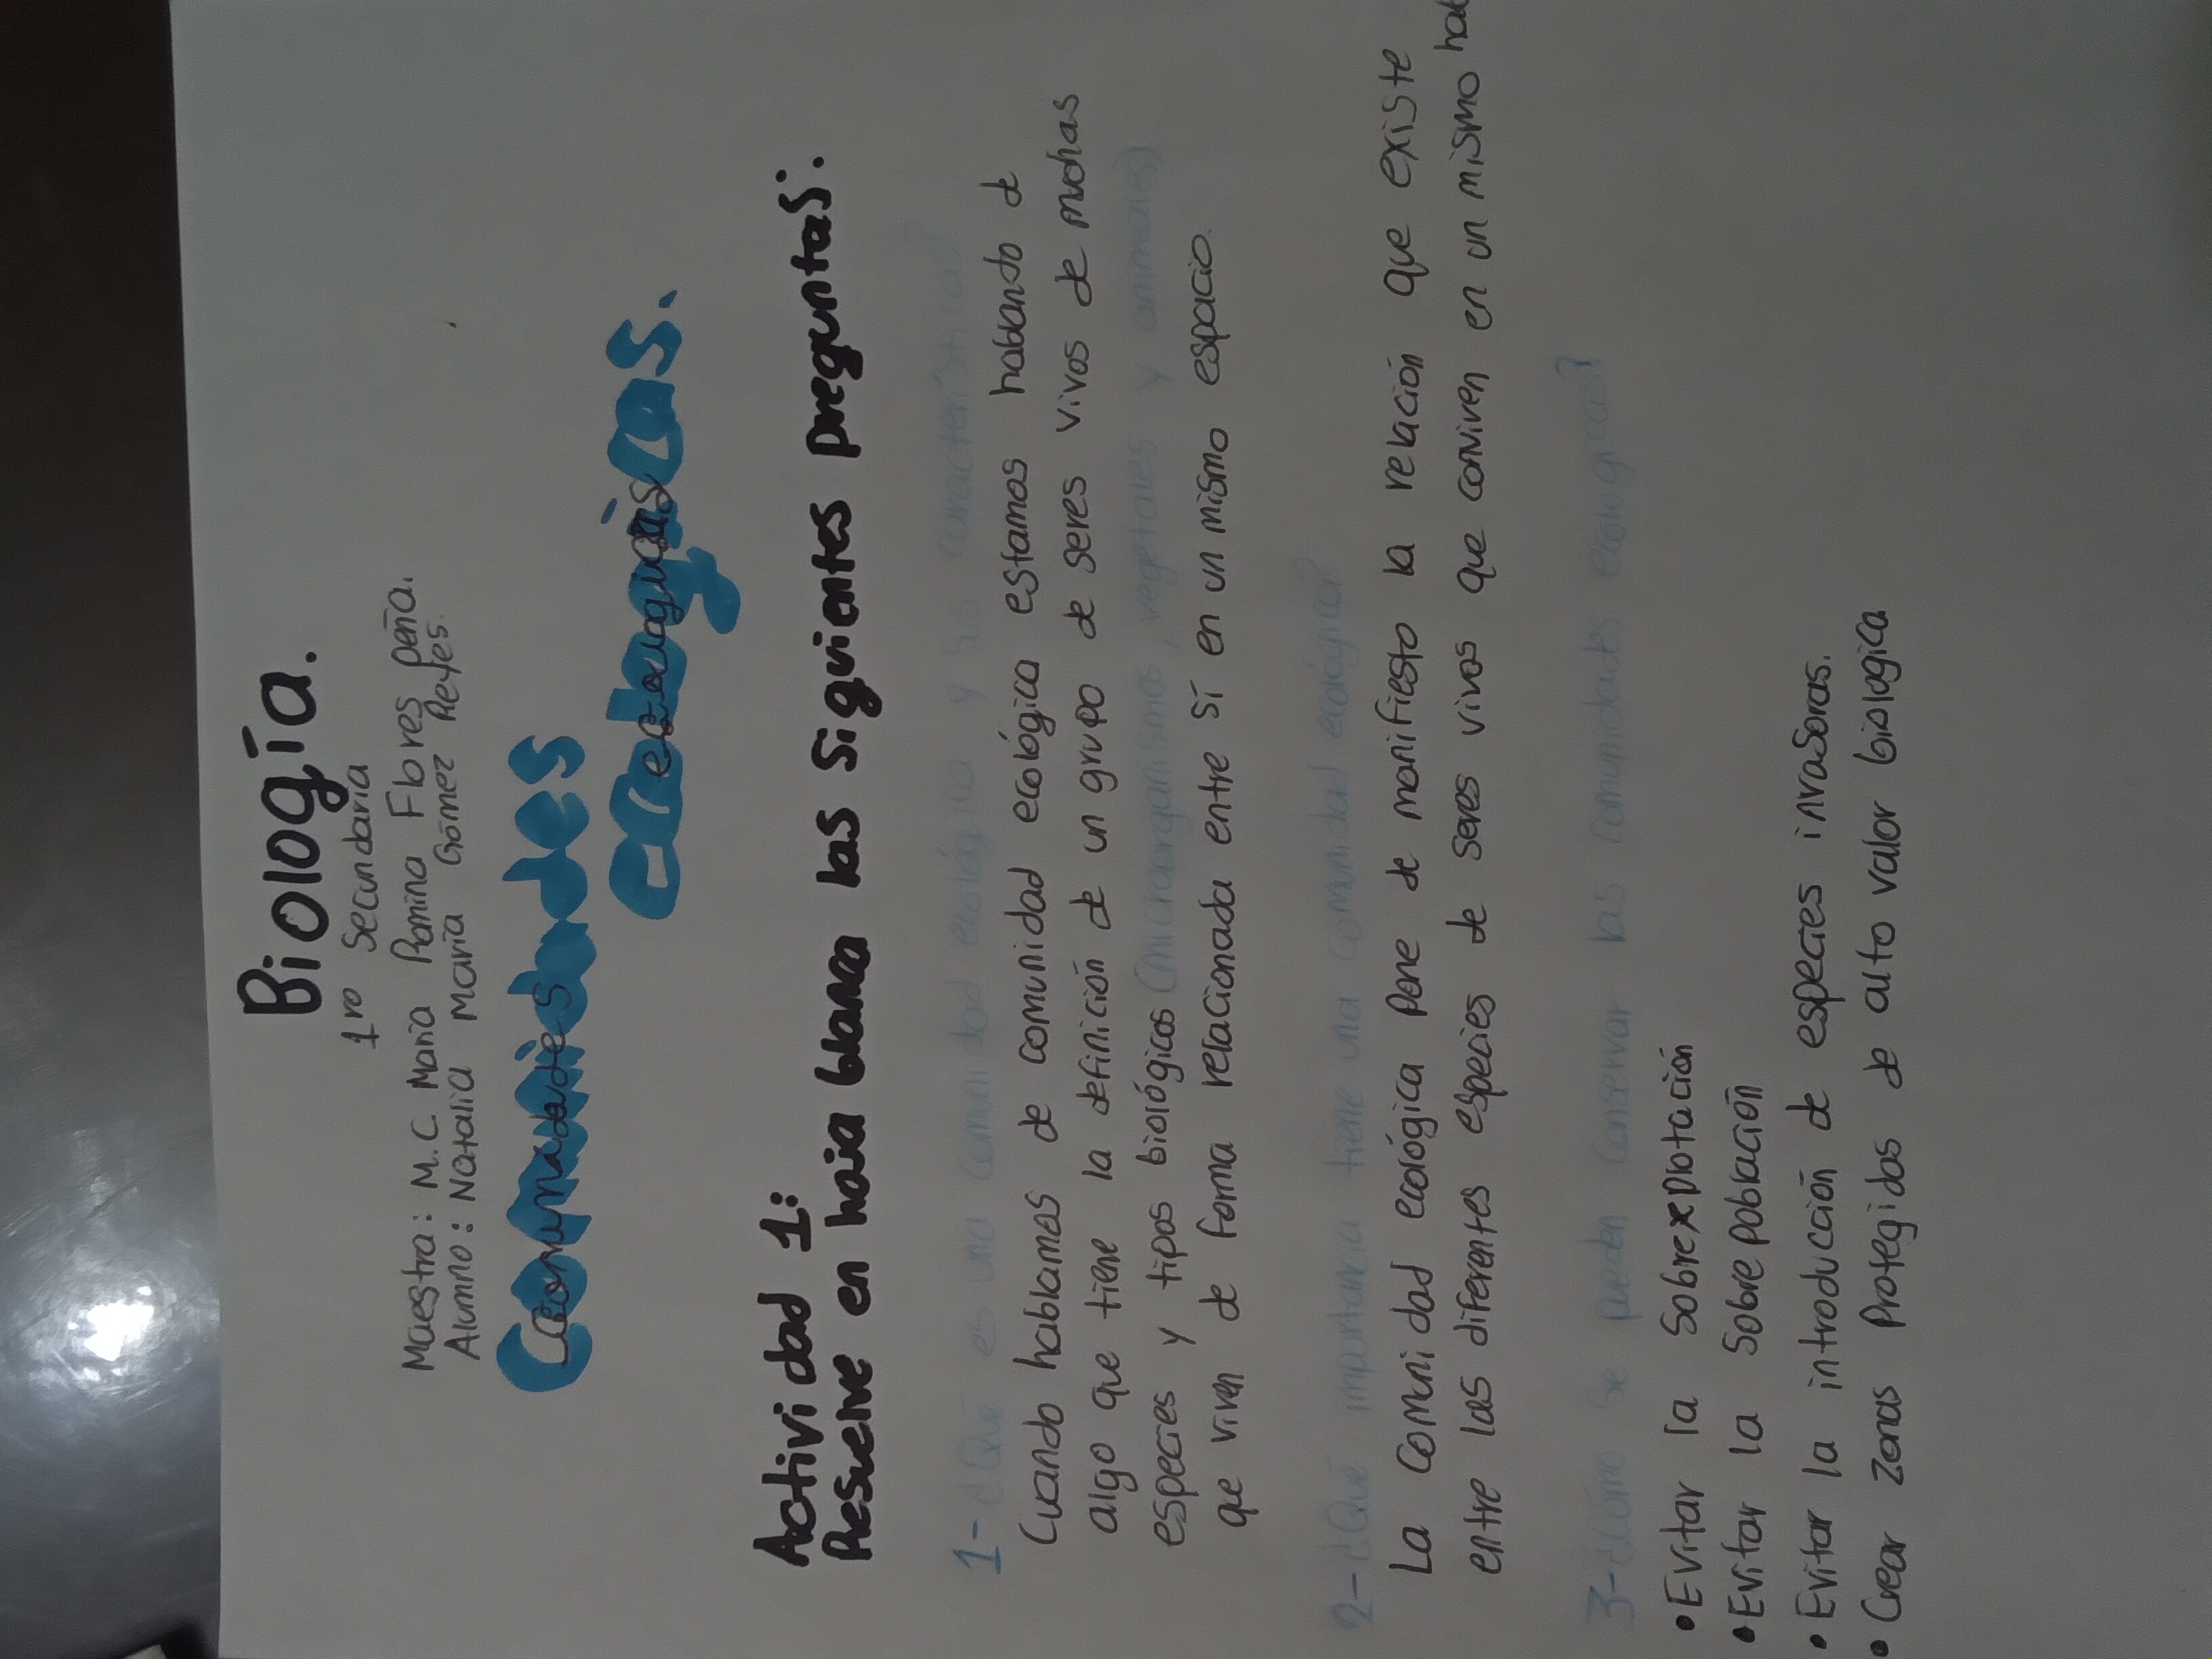 Biología.
1ro Secundaria
Maestra: M.C. María Romina Flores peña.
Alumno: Natalia María Gómez Reyes.
Comunidades
ecologicas.
Actividad 1:
Resuelve en hoja blanca las siguientes preguntas:
1-¿Qué es una comunidad ecológica y sus características?
Cuando hablamos de comunidad ecológica estamos hablando de
algo que tiene la definición de un grupo de seres vivos de muchas
especies y tipos biológicos (microorganismos, vegetales y animales)
que viven de forma relacionada entre sí en un mismo espacio.
2-¿Qué importancia tiene una comunidad ecológica?
La comunidad ecológica pone de manifiesto la relación que existe
entre las diferentes especies de seres vivos que conviven en un mismo
3-¿Cómo se pueden conservar las comunidades ecologicas?
• Evitar la Sobrexplotación
• Evitar la Sobrepoblación
• Evitar la introducción de especies invasoras.
• Crear zonas protegidas de alto valor biologica